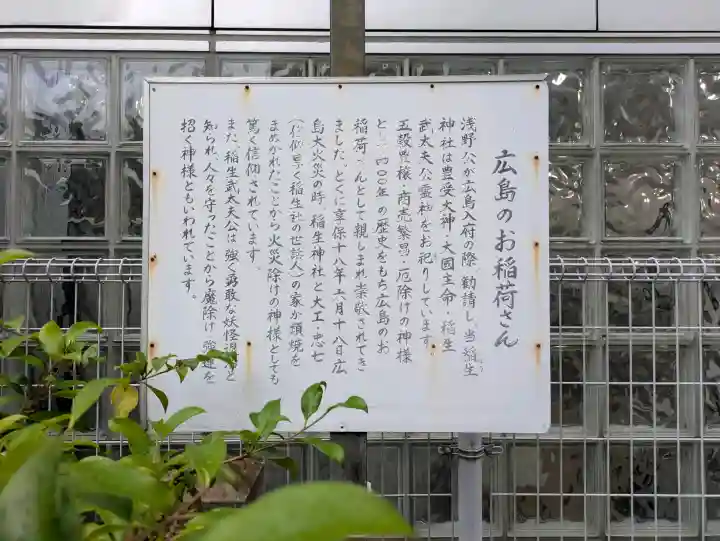 広島のお稲荷さん
浅野公が広島入府の際、勧請し、当稲生
神社は豊受大神・大国主命・稲生
武太夫公霊社をお祀りしています。
五穀豊穣・商売繁昌・厄除けの神様
として四〇〇年の歴史をもち広島のお
稲荷さんとして親しまれ崇敬されてき
ました。とくに享保十八年六月十八日広
島大火災の時、稲生神社と大工・忠七
（信仰厚く稲生社の世話人）の家が類焼を
まぬかれたことから火災除けの神様としても
篤く信仰されています。
また、稲生武太夫公は強く勇敢な妖怪退治と
知られ、人々を守ったことから魔除け・強運を
招く神様ともいわれています。